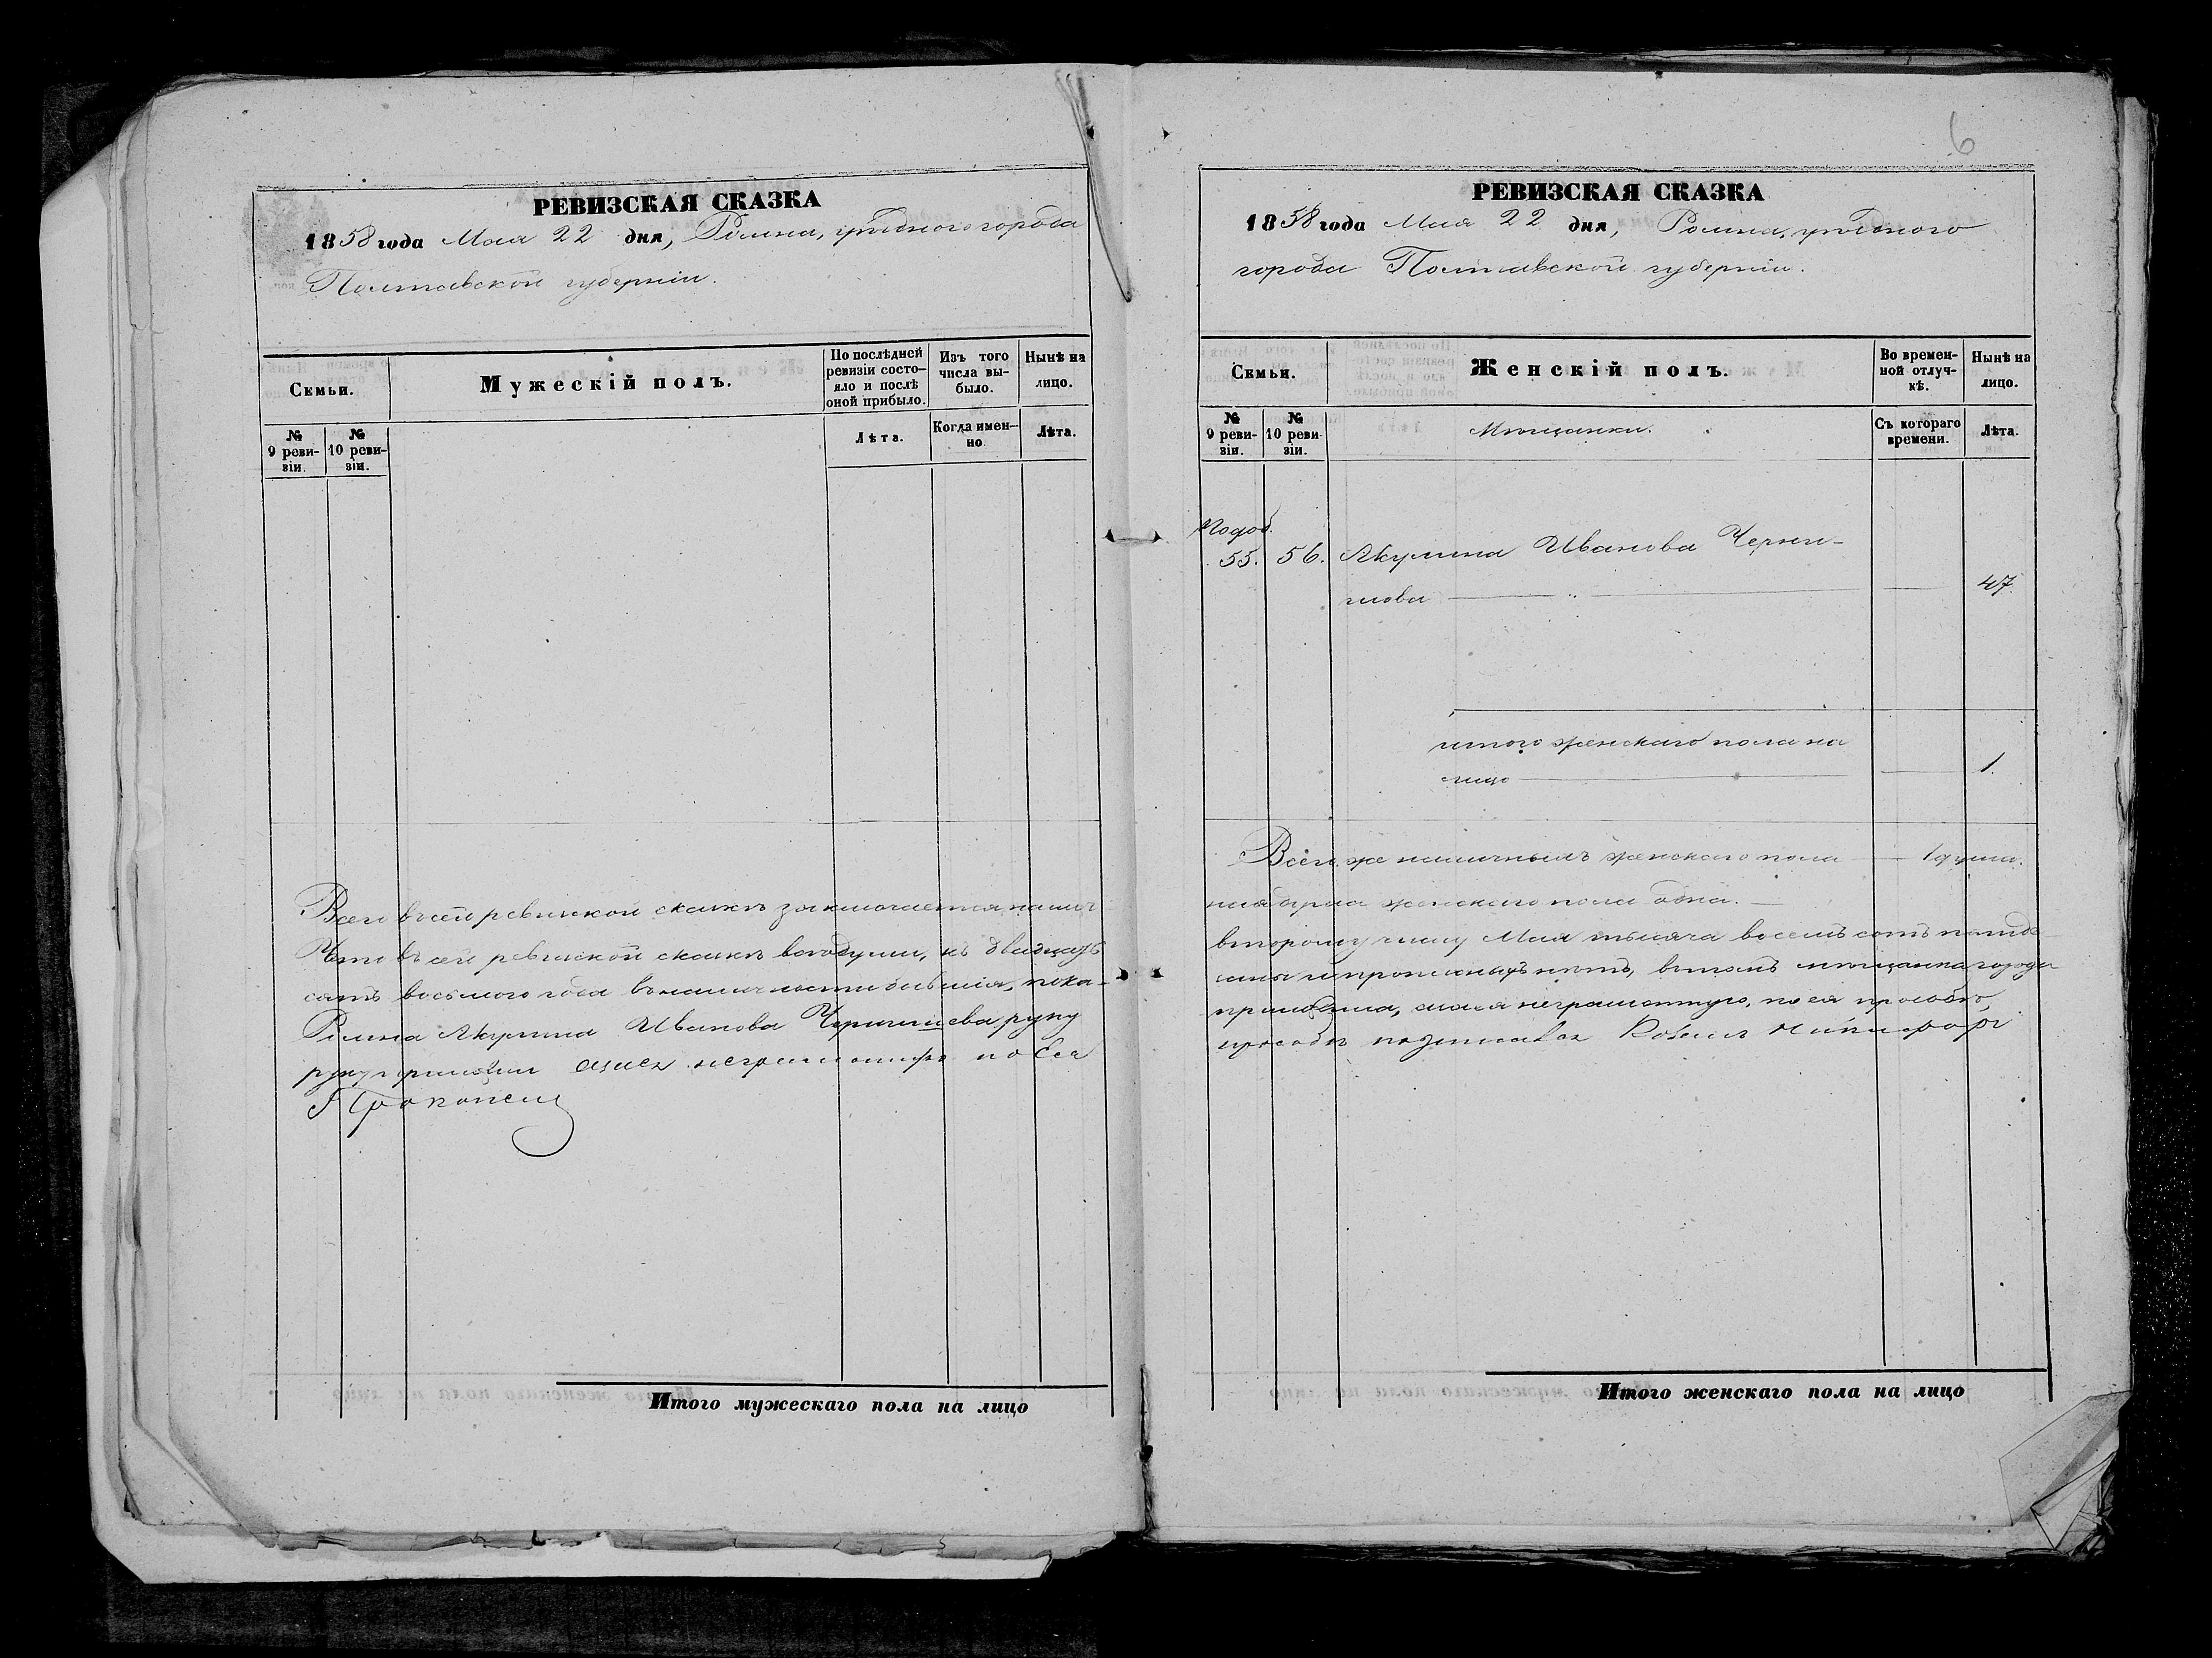 РЕВИЗСКАЯ СКАЗКА
1858 года Мая 22 дня, Ромна, уѣзднаго города
Полтавской губерніи.
Семьи.
Мужескій полъ.
По послѣдней
ревизіи состо-
яло и послѣ
оной прибыло.
Изъ того
числа вы-
было.
Нынѣ на
лицо.
№
9 реви-
зіи.
№
10 реви-
зіи.
Лѣта.
Когда имен-
но.
Лѣта.
Всего въ сей ревизской сказкѣ заключается налич
Что въ сей ревизской сказкѣ всѣ души, къ двадцать
сятъ восьмого года въ наличности бывшія, пока-
Ромна Якулина Иванова руку
по Ея
Прокопенъ
Итого мужескаго пола на лицо
6
РЕВИЗСКАЯ СКАЗКА
1858 года Мая 22 дня, Ромна, уѣзднаго
города Полтавской губерніи.
Семьи.
Женскій полъ.
Во времен-
ной отлуч-
кѣ.
Нынѣ на
лицо.
№
9 реви-
зіи.
№
10 реви-
зіи.
Мѣщанки.
Съ котораго
времени.
Лѣта.
55. 56. Якулина Иванова Черни-
47.
итого женскаго пола на
лицо 1.
Всего же наличныхъ женскаго пола 1 душа.
ная душа женскаго пола одна.
второму числу Мая тысяча восемь сотъ пятьде
заны и прописныхъ нѣтъ, въ томъ мѣщанка города
приложила, а за нея неграмотную, по ея прозьбѣ,
прозбѣ Никифоръ
Итого женскаго пола на лицо